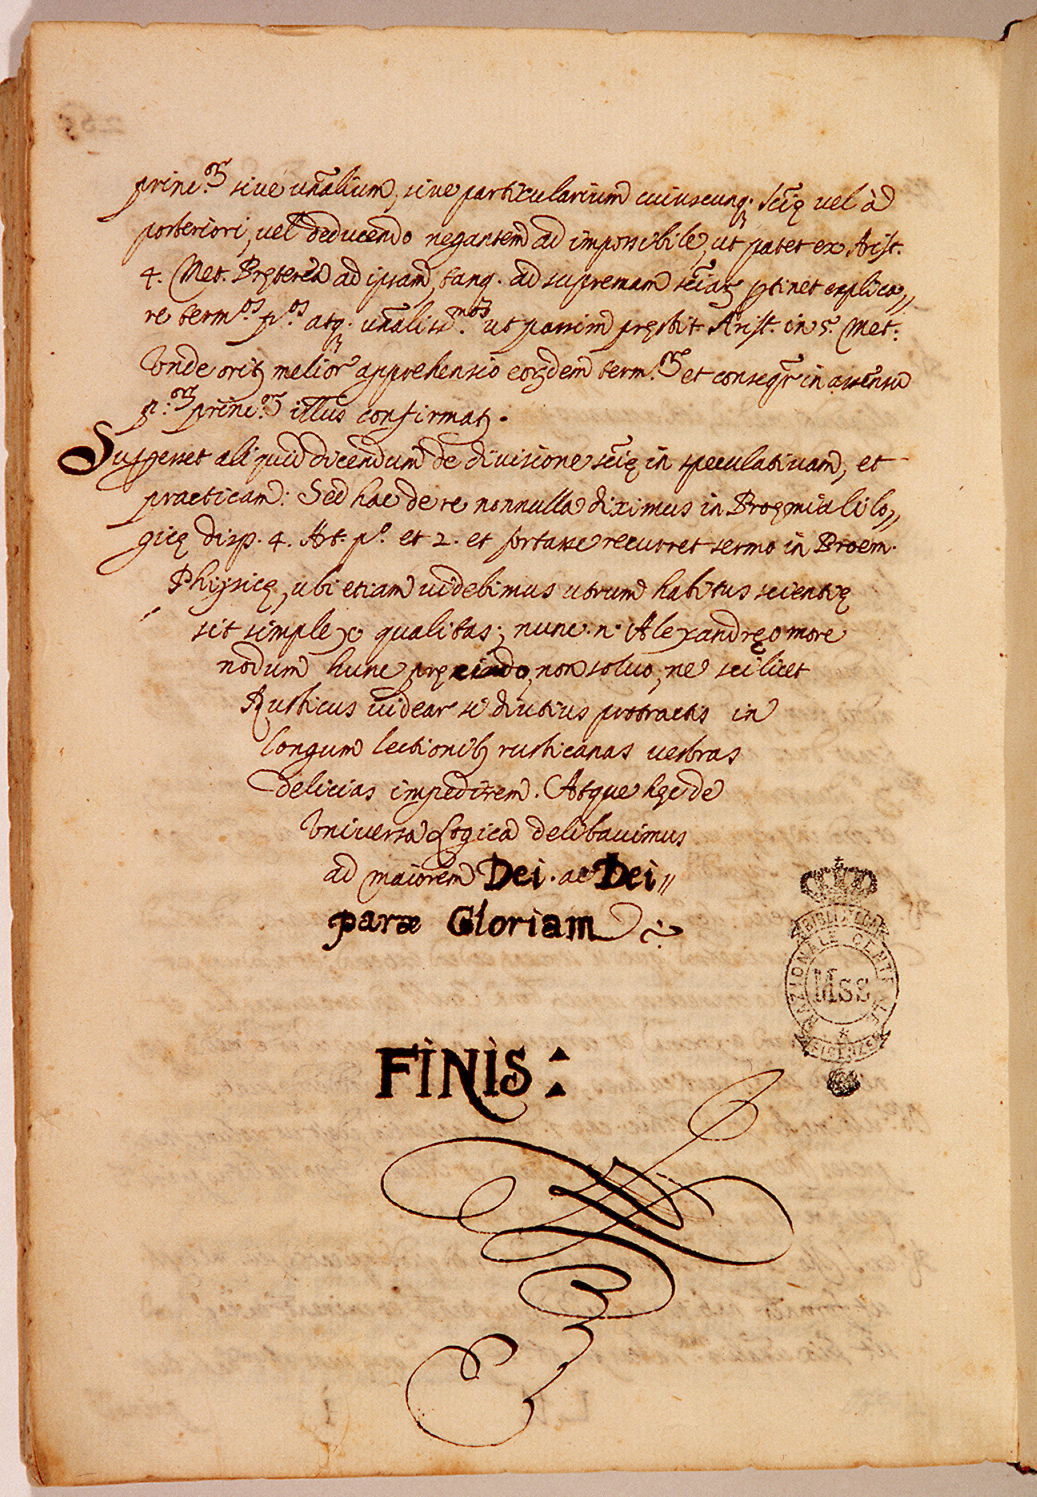 princ.m sive uñalium, sive particularium cuiuscunq; sciẽ vel à
posteriori, vel deducendo negantem ad impossibile, ut patet ex Arist.
4. Met. Pręterea ad ipsam, tanq. ad supremam sciãz ptinet explica//
re term.os p.os atq; uñaliss.mos ut passim pręstit Arist. in 5. Met.
Unde oritz melior apprehensio eorzdem term.m et conseqr in assensu
p.m princ.m illius confirmatz.
Supperset aliquid dicendum de divisione sciẽ in speculativam, et
practicam: Sed hac de re nonnulla diximus in Proęmiali lo//
gicę disp. 4. Art. p.o et 2. et fortasse recurret sermo in Proem.
Physicę, ubi etiam videbimus utrum habitus scientię
sit simplex qualitas; nunc .n. Alexandręo more
nodum hunc pręcindo, non solvo, ne scilicet
Rusticus videar si diutius protractis in
longum lectionibz rusticanas vestras
delicias impedirem. Atque hęc de
Universa Logica delibavimus
ad maiorem Dei. ac Dei//
paræ Gloriam
BIBLIOTECA
NAZIONALE CENTRALE
Mss
FIRENZE
FINIS: